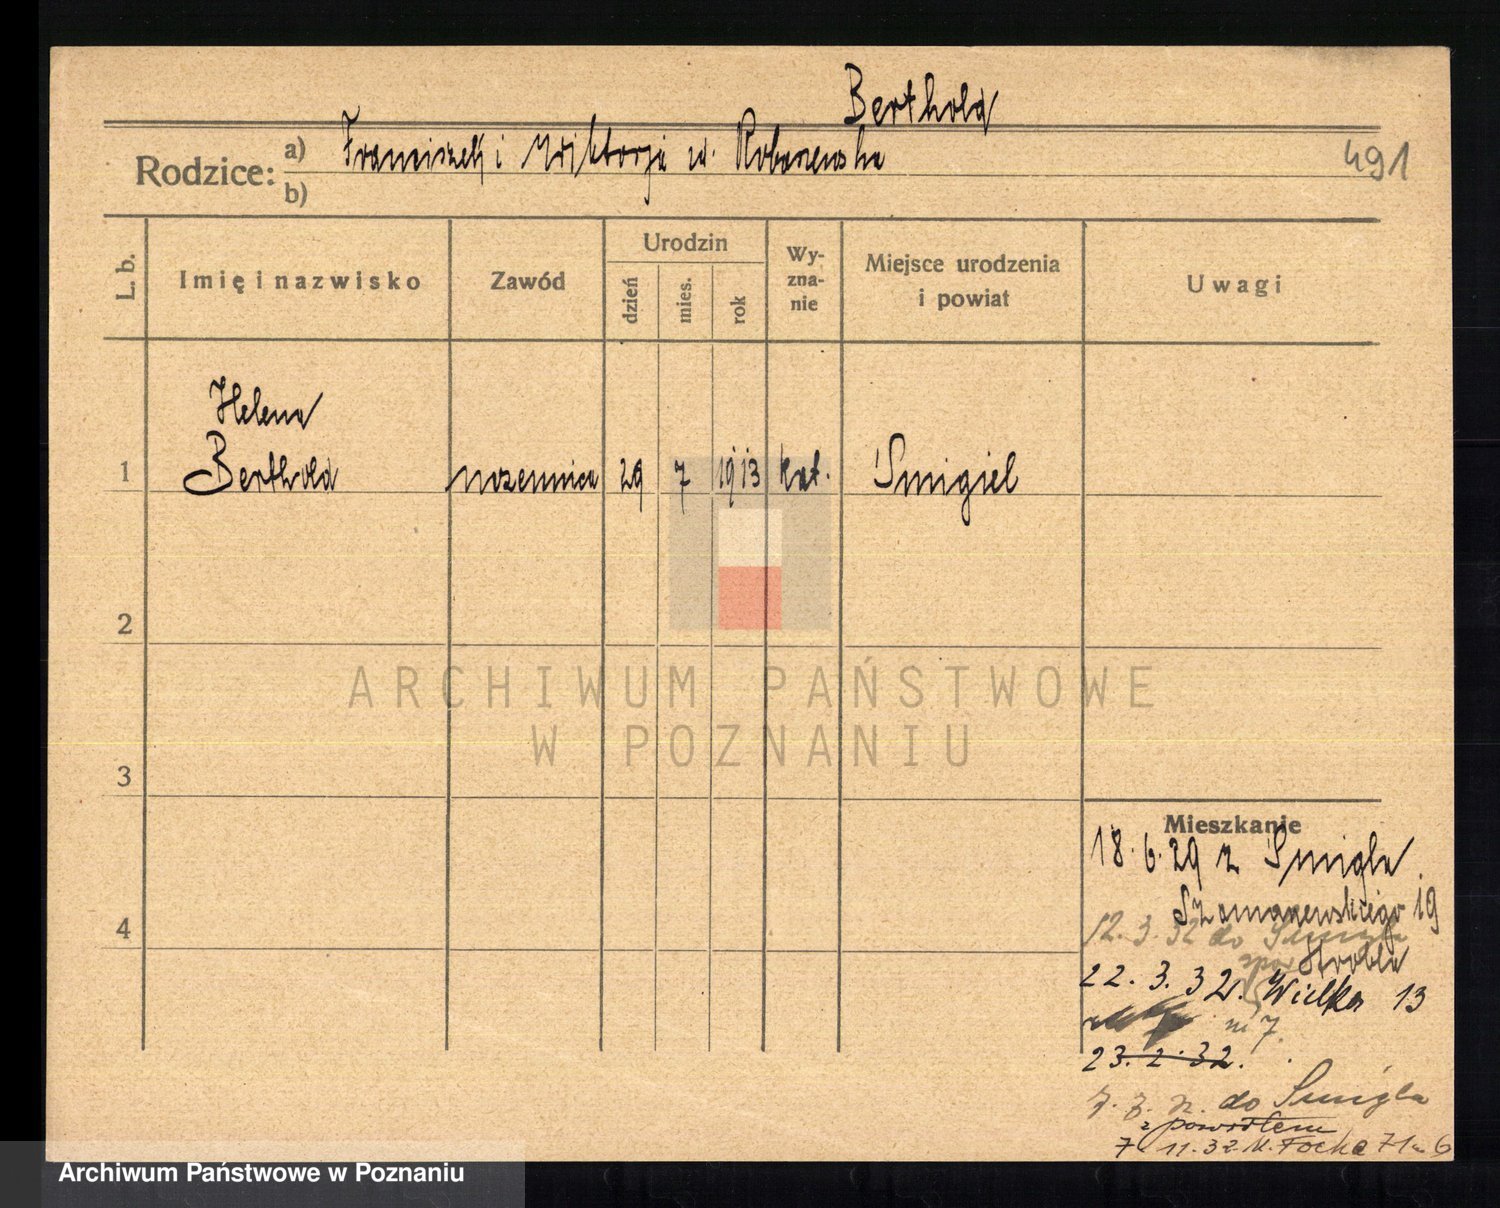 Berthold
Rodzice: a) Franciszek i Wiktorja u. Robaszewska
b)
491
L. b.
Imię i nazwisko
Zawód
Urodzin
dzień
mies.
rok
Wy-
zna-
nie
Miejsce urodzenia
i powiat
Uwagi
Helena
1 Berthold uczennica 29 7 1913 kat. Śmigiel
2
ARCHIWUM PAŃSTWOWE
W POZNANIU
3
Mieszkanie
18.6.29 z Śmigla
19
4
12.3.32 do Śmigla
22.3.32. Wielka 13
m 7.
23.2.32.
do Śmigla
z powrotem
7.11.32 M. Focha 71 m 6
Archiwum Państwowe w Poznaniu